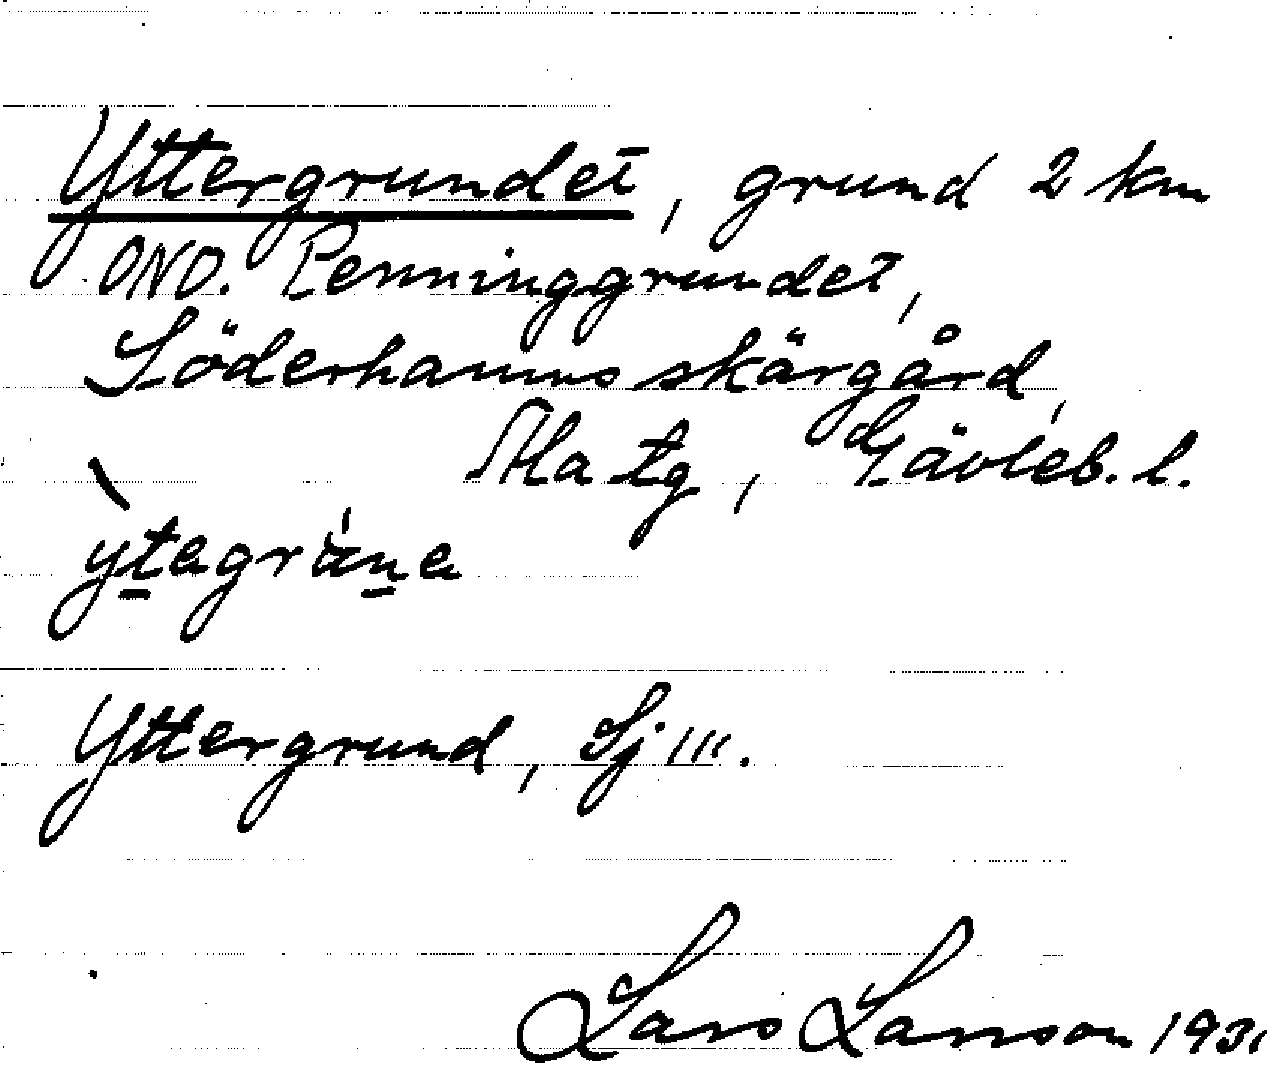 Yttergrundet, grund 2 km
ONO. Penninggrundet,
Söderhamns skärgård,
Ala tg, Gävleb. l.
Yttergrund, Sj 111.
Lars Larsson 1931